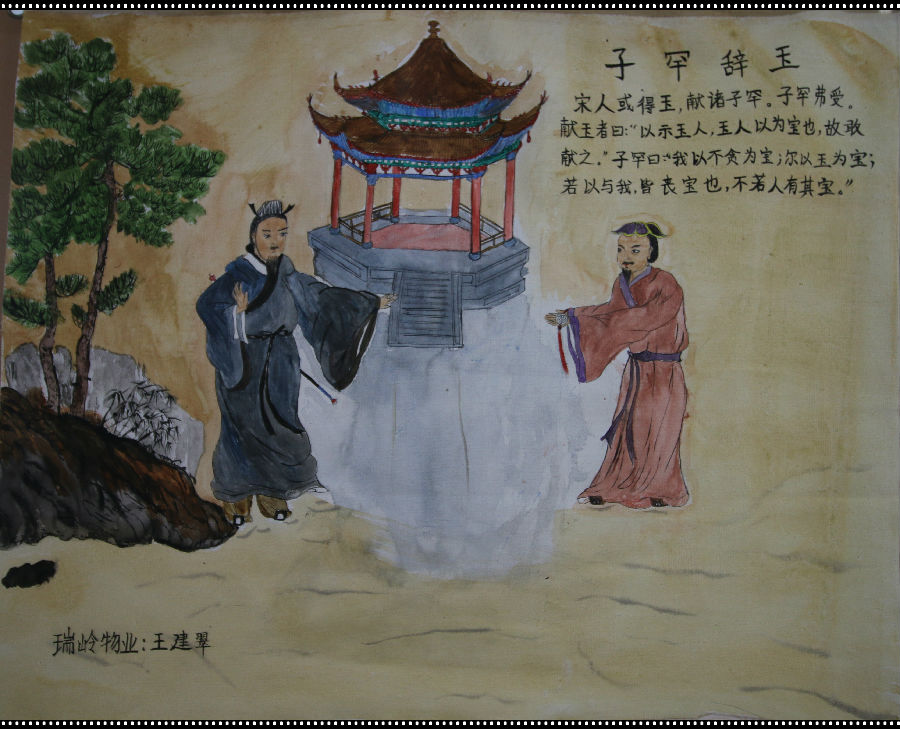 子罕辞玉
宋人或得玉，献诸子罕。子罕弗受。
献玉者曰：“以示玉人，玉人以为宝也，故敢
献之。”子罕曰：“我以不贪为宝；尔以玉为宝；
若以与我，皆丧宝也，不若人有其宝。”
瑞岭物业：王建翠